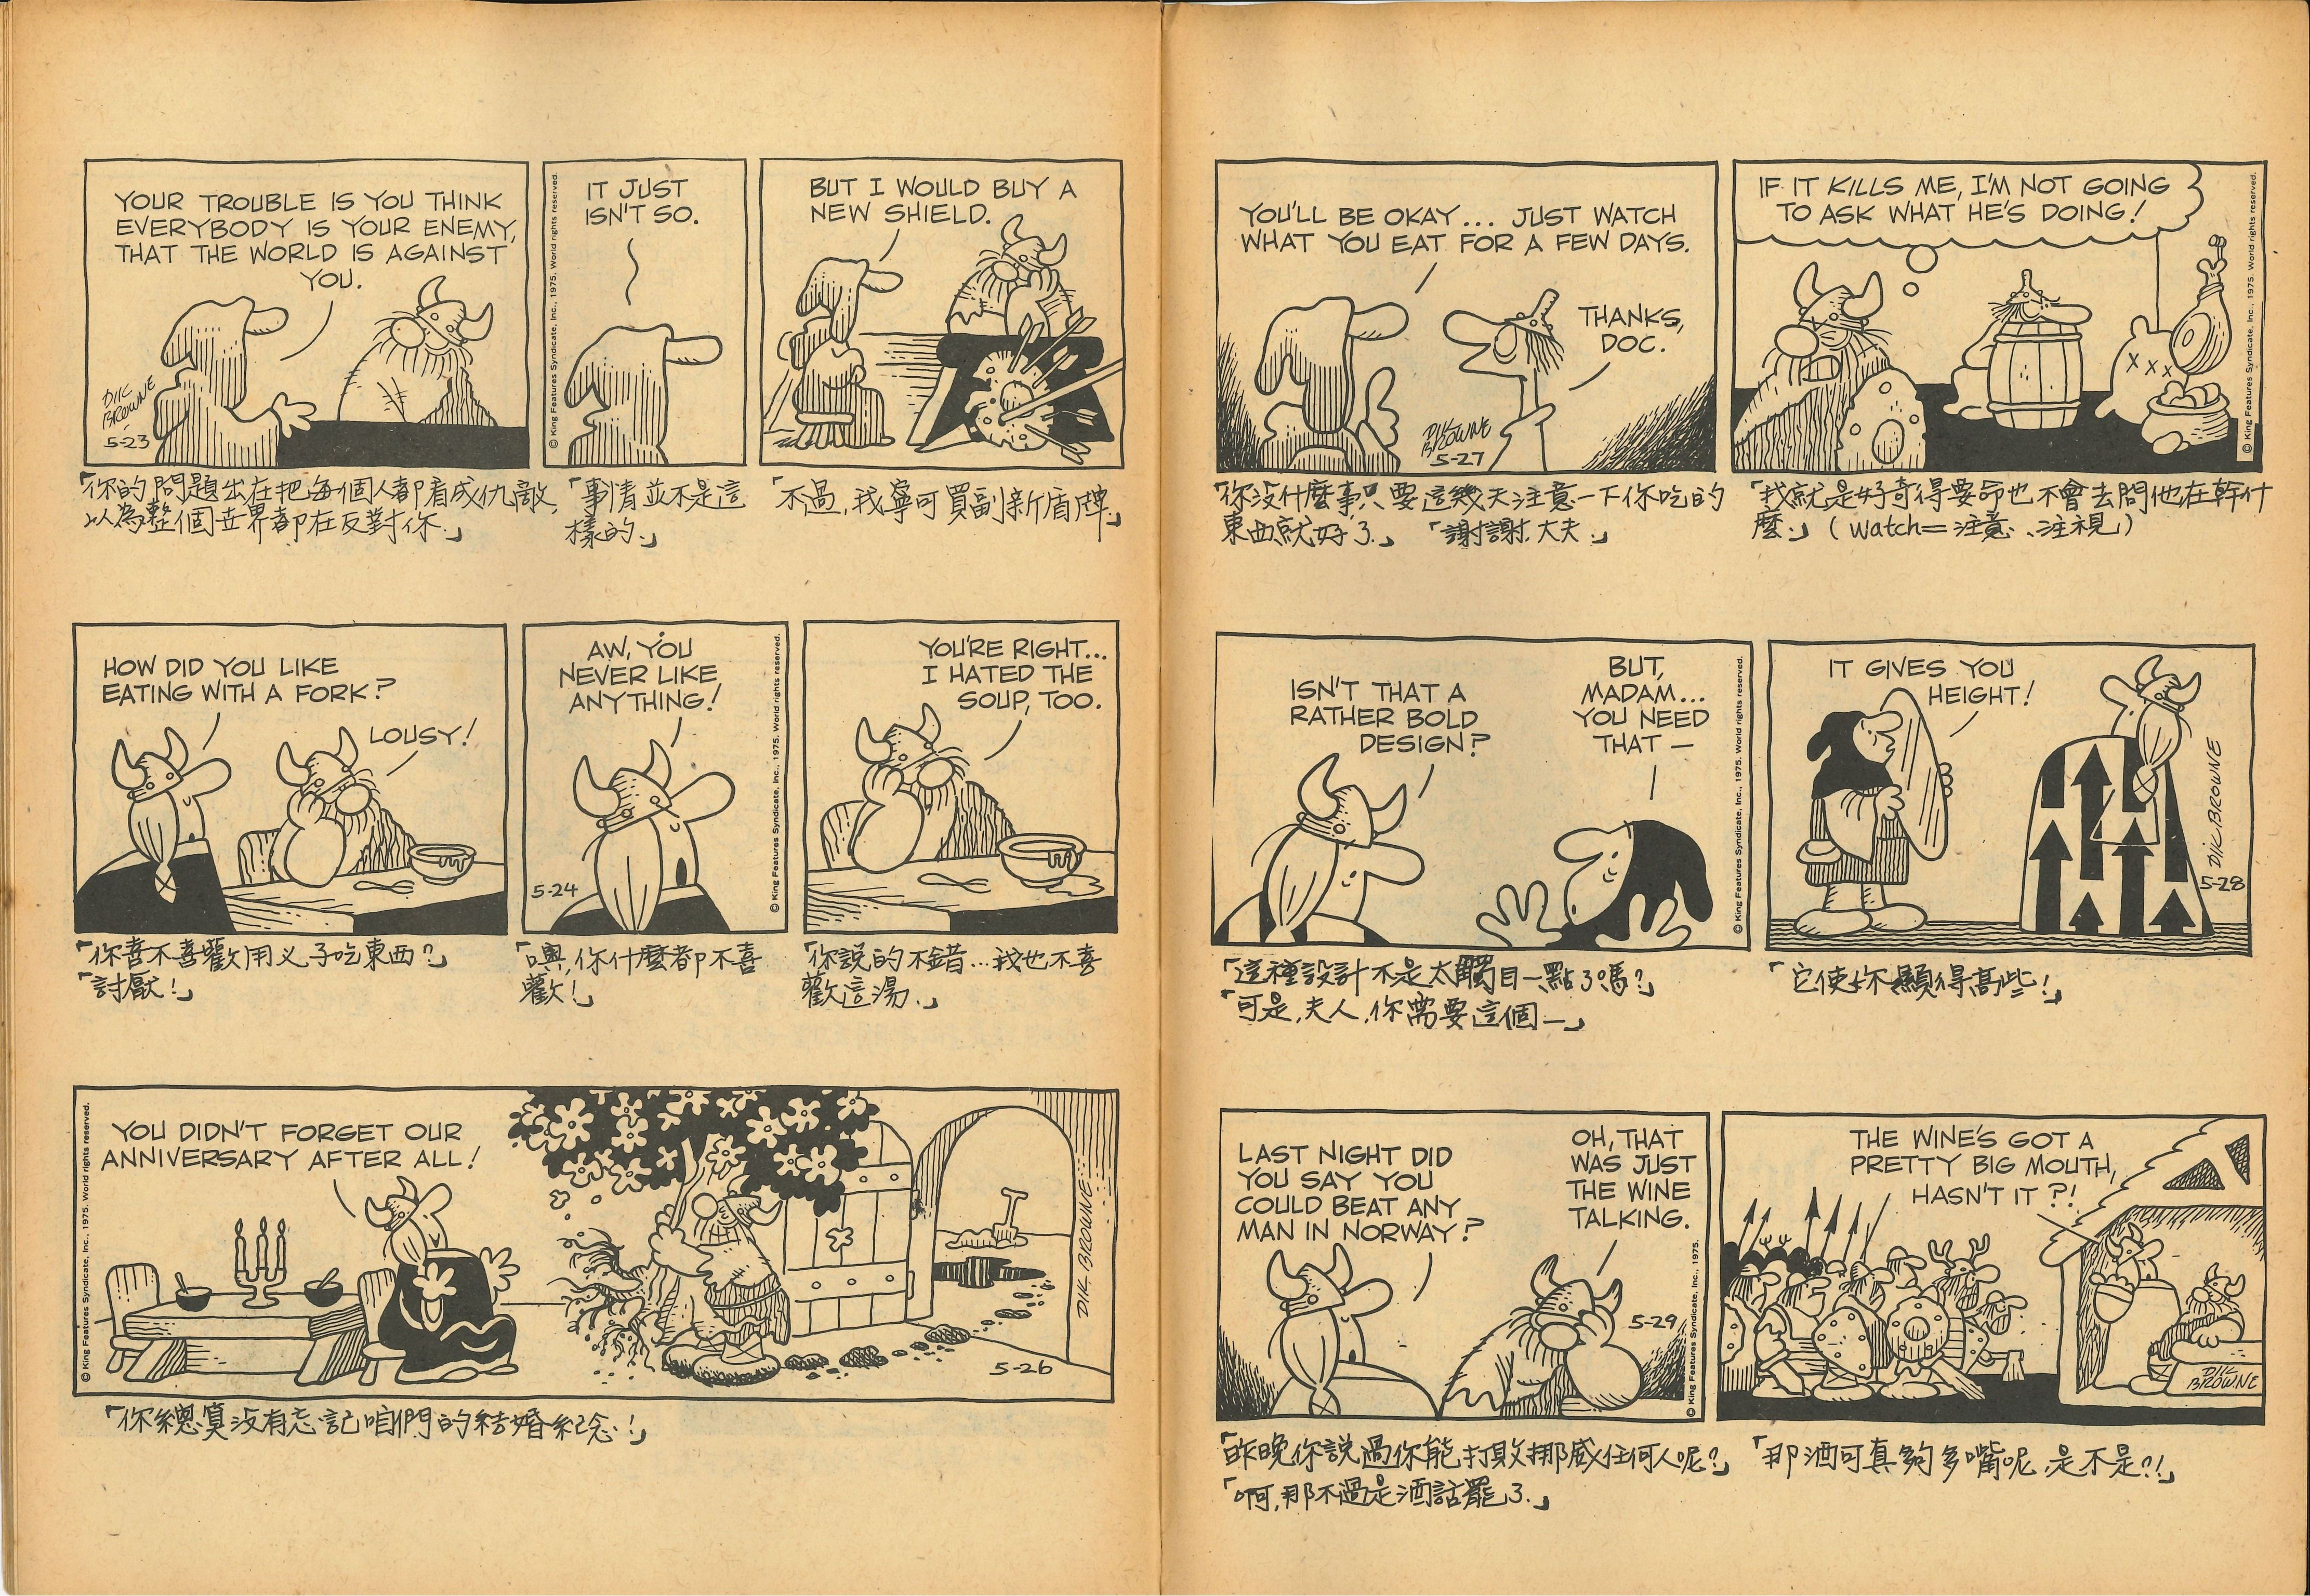 YOUR TROUBLE IS YOU THINK
EVERYBODY IS YOUR ENEMY,
THAT THE WORLD IS AGAINST
YOU.
DIK
BROWNE
5-23
© King Features Syndicate, Inc., 1975. World rights reserved.
IT JUST
ISN'T SO.
BUT I WOULD BUY A
NEW SHIELD.
「你的問題出在把每個人都看成仇敵,
以為整個世界都在反對你.」
「事情並不是這
樣的.」
「不過,我寧可買副新盾牌.」
HOW DID YOU LIKE
EATING WITH A FORK?
LOUSY!
AW, YOU
NEVER LIKE
ANYTHING!
5-24
© King Features Syndicate, Inc., 1975. World rights reserved.
YOU'RE RIGHT...
I HATED THE
SOUP, TOO.
「你喜不喜歡用义子吃東西?」
「討厭!」
「噢,你什麼都不喜
歡!」
「你說的不錯...我也不喜
歡這湯.」
© King Features Syndicate, Inc., 1975. World rights reserved.
YOU DIDN'T FORGET OUR
ANNIVERSARY AFTER ALL!
DIK BROWNE
5-26
「你總算没有忘記咱們的結婚紀念!」
YOU'LL BE OKAY... JUST WATCH
WHAT YOU EAT FOR A FEW DAYS.
THANKS,
DOC.
DIK
BROWNE
5-27
IF IT KILLS ME, I'M NOT GOING
TO ASK WHAT HE'S DOING!
XXX
© King Features Syndicate, Inc., 1975. World rights reserved.
「你没什麼事只要這幾天注意一下你吃的
東西就好了.」 「謝謝,大夫.」
「我就是好奇得要命也不會去問他在幹什
麼.」(watch=注意、注視)
ISN'T THAT A
RATHER BOLD
DESIGN?
BUT,
MADAM...
YOU NEED
THAT —
© King Features Syndicate, Inc., 1975. World rights reserved.
IT GIVES YOU
HEIGHT!
DIK BROWNE
5-28
「這種設計不是太觸目一點了嗎?」
「可是,夫人,你需要這個—」
「它使妳顯得高些!」
LAST NIGHT DID
YOU SAY YOU
COULD BEAT ANY
MAN IN NORWAY?
OH, THAT
WAS JUST
THE WINE
TALKING.
5-29
© King Features Syndicate, Inc., 1975.
THE WINE'S GOT A
PRETTY BIG MOUTH,
HASN'T IT?!
DIK
BROWNE
「昨晚你說過你能打敗挪威任何人呢?」
「啊,那不過是酒話罷了.」
「那酒可真夠多嘴呢,是不是?!」